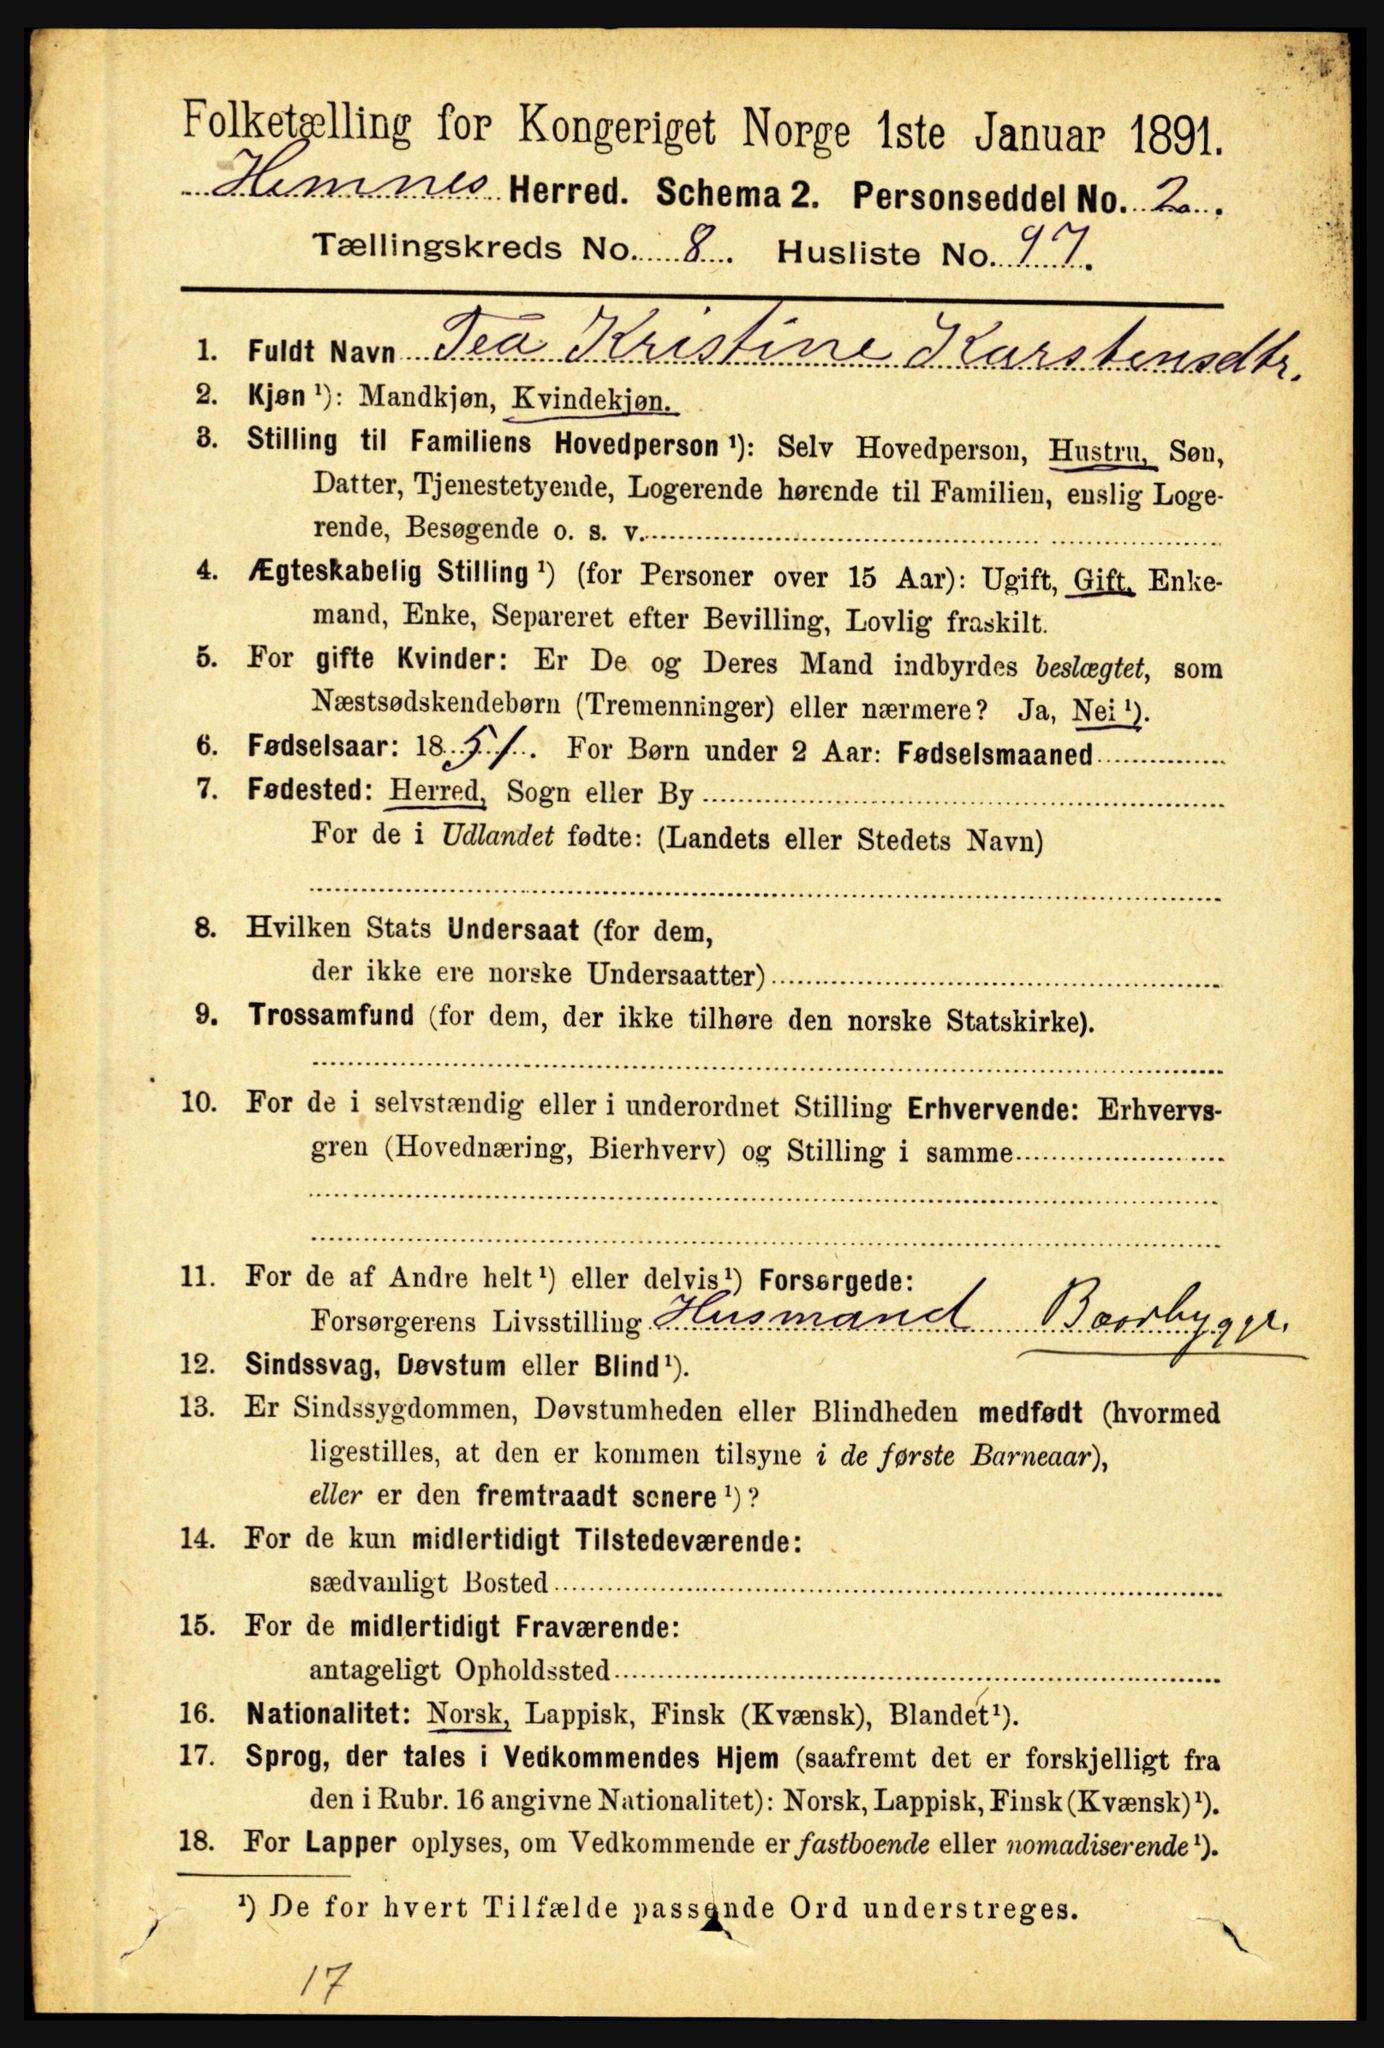 Folketælling for Kongeriget Norge 1ste Januar 1891.
Hemnes Herred. Schema 2. Personseddel No. 2.
Tællingskreds No. 8. Husliste No. 97.
1. Fuldt Navn Tea Kristine Karstensdtr.
2. Kjøn ¹): Mandkjøn, Kvindekjøn.
3. Stilling til Familiens Hovedperson ¹): Selv Hovedperson, Hustru, Søn,
Datter, Tjenestetyende, Logerende hørende til Familien, enslig Loge-
rende, Besøgende o. s. v.
4. Ægteskabelig Stilling ¹) (for Personer over 15 Aar): Ugift, Gift, Enke-
mand, Enke, Separeret efter Bevilling, Lovlig fraskilt.
5. For gifte Kvinder: Er De og Deres Mand indbyrdes beslægtet, som
Næstsødskendebørn (Tremenninger) eller nærmere? Ja, Nei ¹).
6. Fødselsaar: 1851. For Børn under 2 Aar: Fødselsmaaned
7. Fødested: Herred, Sogn eller By
For de i Udlandet fødte: (Landets eller Stedets Navn)
8. Hvilken Stats Undersaat (for dem,
der ikke ere norske Undersaatter)
9. Trossamfund (for dem, der ikke tilhøre den norske Statskirke).
10. For de i selvstændig eller i underordnet Stilling Erhvervende: Erhvervs-
gren (Hovednæring, Bierhverv) og Stilling i samme
11. For de af Andre helt ¹) eller delvis ¹) Forsørgede:
Forsørgerens Livsstilling Husmand Baadbygger.
12. Sindssvag, Døvstum eller Blind ¹).
13. Er Sindssygdommen, Døvstumheden eller Blindheden medfødt (hvormed
ligestilles, at den er kommen tilsyne i de første Barneaar),
eller er den fremtraadt senere ¹)?
14. For de kun midlertidigt Tilstedeværende:
sædvanligt Bosted
15. For de midlertidigt Fraværende:
antageligt Opholdssted
16. Nationalitet: Norsk, Lappisk, Finsk (Kvænsk), Blandet ¹).
17. Sprog, der tales i Vedkommendes Hjem (saafremt det er forskjelligt fra
den i Rubr. 16 angivne Nationalitet): Norsk, Lappisk, Finsk (Kvænsk) ¹).
18. For Lapper oplyses, om Vedkommende er fastboende eller nomadiserende ¹).
¹) De for hvert Tilfælde passende Ord understreges.
17